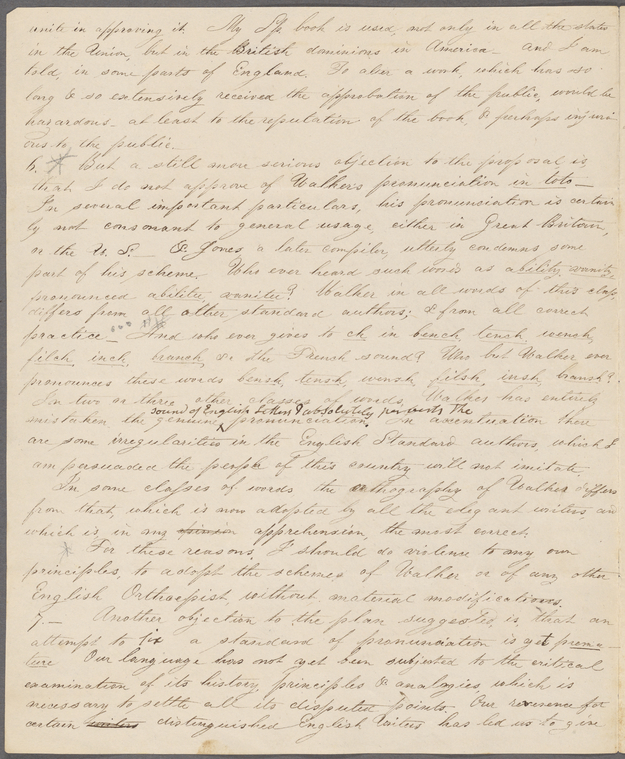 unite in approving it. My Sp. book is used, not only in all the states
in the Union, but in the British dominions in America – and I am
told, in some parts of England. To alter a work, which has so
long & so extensively received the approbation of the public, would be
hazardous – at least to the reputation of the book, & perhaps injuri-
ous to the public.
6. But a still more serious objection to the proposal is
that I do not approve of Walkers pronunciation in toto –
In several important particulars, his pronunciation is certain
ly not consonant to general usage, either in Great Britain,
or the U. S. – & Jones, a later compiler, utterly condemns some
part of his scheme. Who ever heard such words as ability, vanity
pronounced abilitee, vanitee? Walker in all words of this class
differs from all other standard authors; & from all correct
practice – And who ever gives to ch in bench, tench, wench,
filch, inch, branch, &c the French sound? Who but Walker, ever
pronounces these words bensh, tensh, wensh, filsh, insh, bransh?
In two or three other classes of words, Walker has entirely
sound of English letters & absolutely perverts the
mistaken the genuine pronunciation. In accentuation there
are some irregularities in the English Standard authors, which I
am persuaded the people of this country will not imitate.
In some classes of words the orthography of Walker differs
from that, which is now adopted by all the elegant writers and
which is, in my opinion apprehension, the most correct.
For these reasons, I should do violence to my own
principles, to adopt the schemes of Walker or of any other
English Orthoepist, without material modifications.
7. – Another objection to the plan suggested, is that an
attempt to fix a standard of pronunciation is yet prema-
ture Our language has not yet been subjected to the critical
examination of its history, principles & analogies, which is
necessary to settle all its disputed points. Our reverence for
certain writers distinguished English writers has led us to give